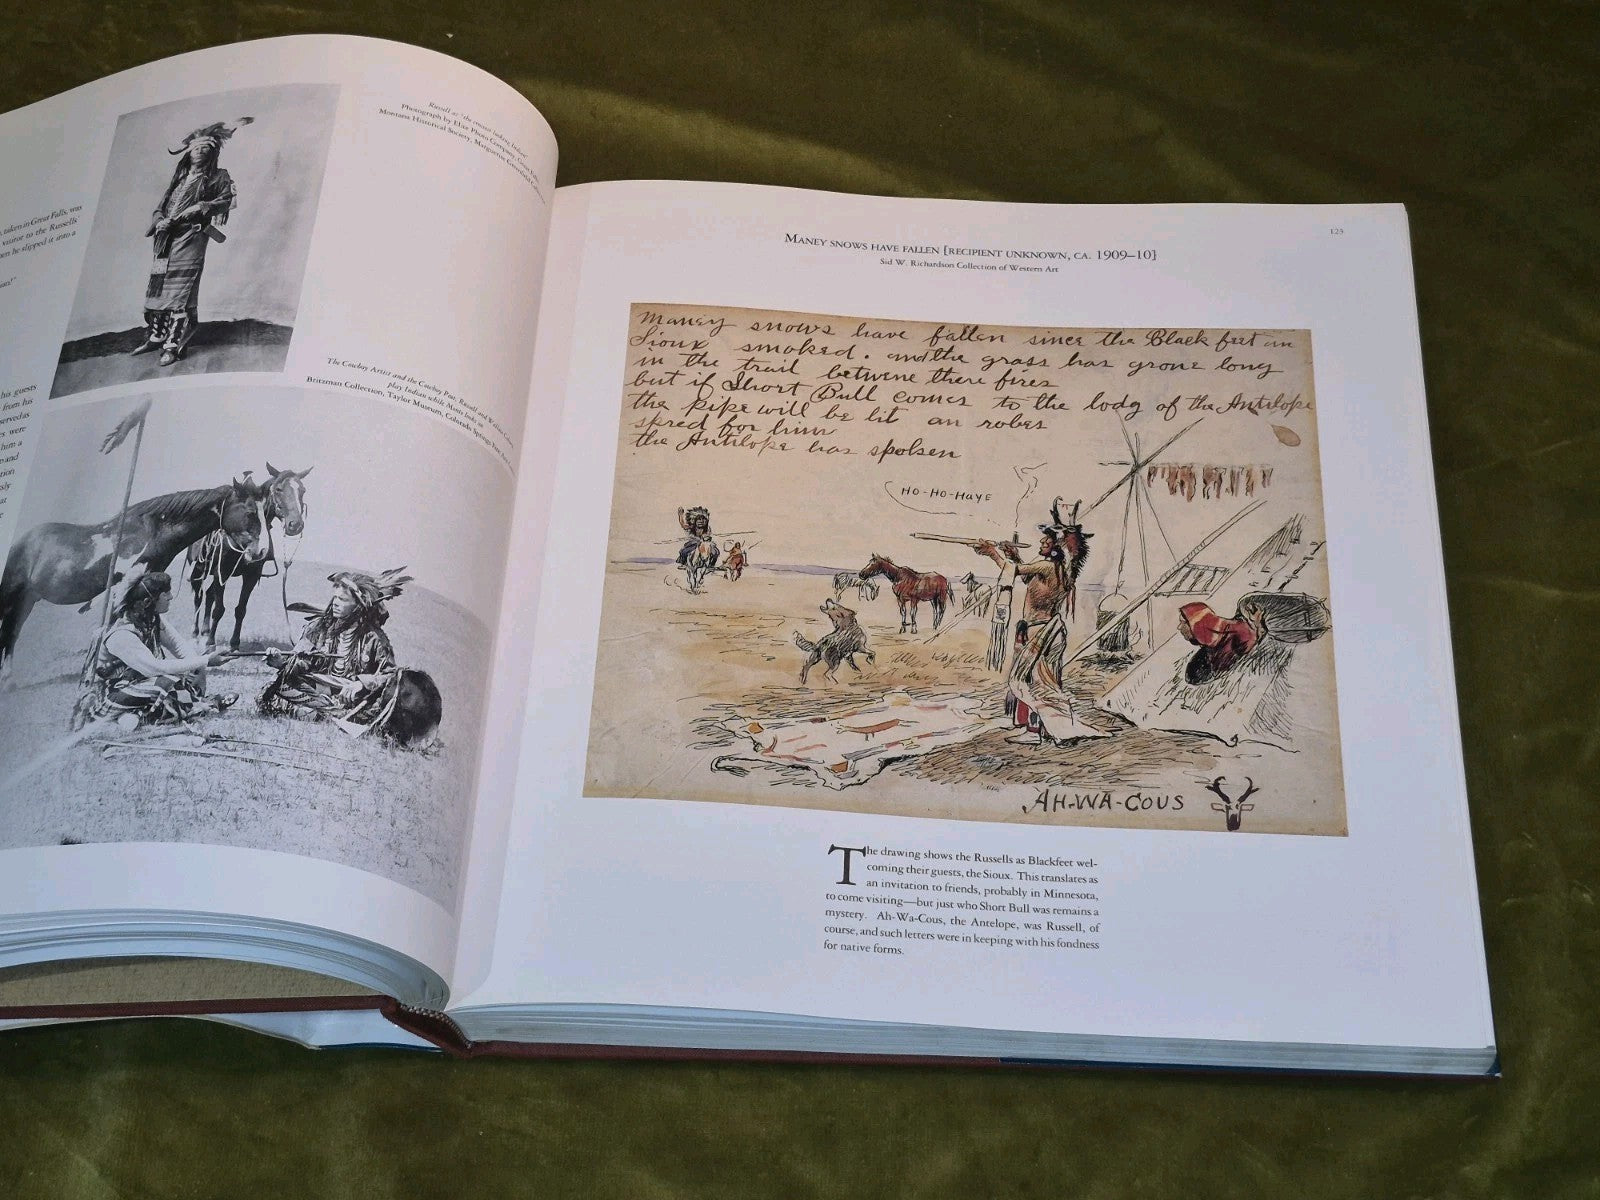 , taken in Great Falls, was
visitor to the Russells
he slipped it into a
his guests
from his
served as
es were
him a
and
tion
Russell as "the cruise looking Indian"
Photograph by Elite Photo Company, Great Falls,
Montana Historical Society, Marguerite Greenfield
The Cowboy Artist and the Cowboy Poet, Russell and William
play Indian while
Britzman Collection, Taylor Museum, Colorado Springs Fine Arts
123
MANEY SNOWS HAVE FALLEN [RECIPIENT UNKNOWN, CA. 1909–10]
Sid W. Richardson Collection of Western Art
Maney snows have fallen since the Black feet an
Sioux smoked. and the grass has grone long
in the trail betwene there fires
but if Short Bull comes to the lodg of the Antilope
the pipe will be lit an robes
spred for him
the Antilope has spoken
HO-HO-HAYE
AH-WA-COUS
The drawing shows the Russells as Blackfeet wel-
coming their guests, the Sioux. This translates as
an invitation to friends, probably in Minnesota,
to come visiting—but just who Short Bull was remains a
mystery. Ah-Wa-Cous, the Antelope, was Russell, of
course, and such letters were in keeping with his fondness
for native forms.